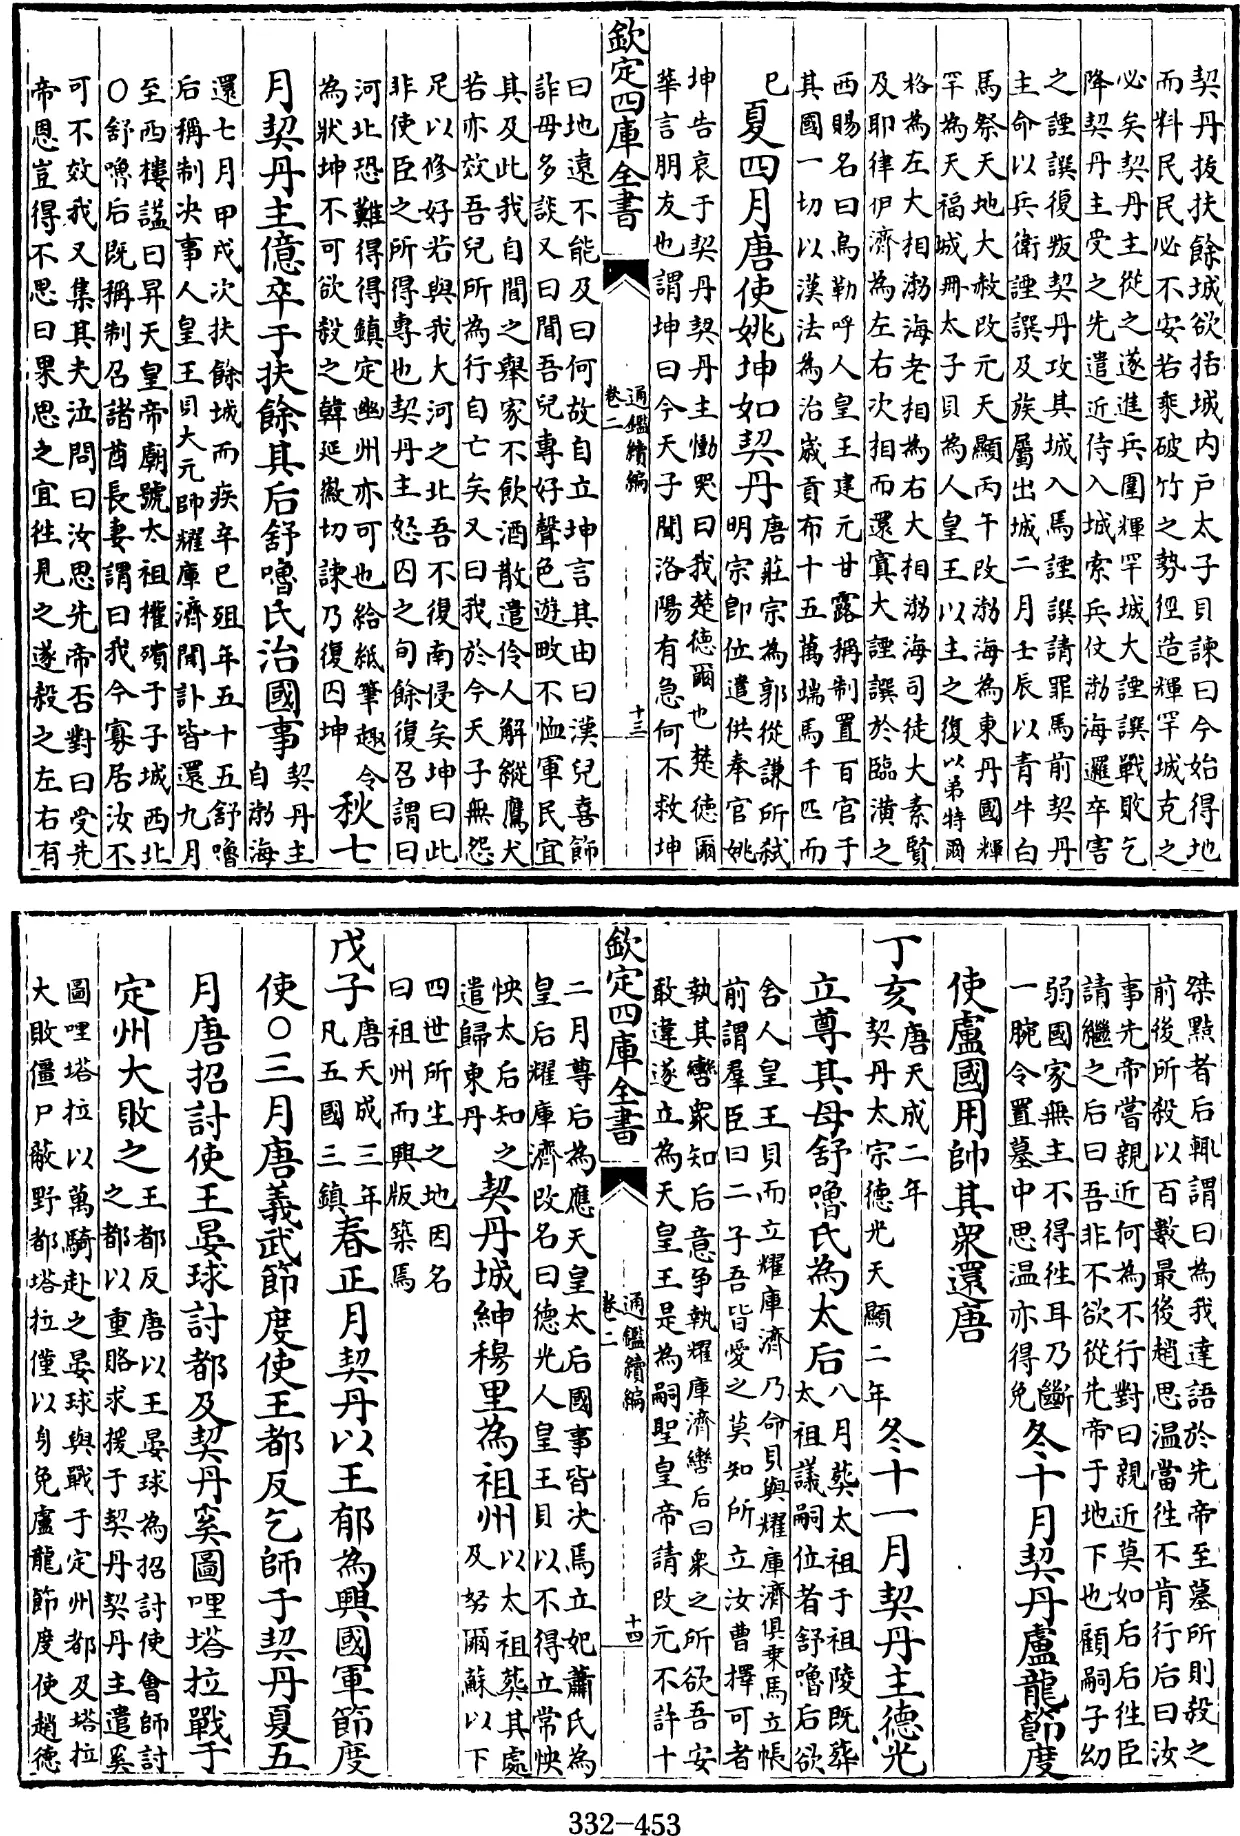 契丹拔扶餘城欲括城内户太子貝諫曰今始得地
而料民民必不安若乗破竹之勢徑造輝罕城克之
必矣契丹主從之遂進兵圍輝罕城大諲譔戰敗乞
降契丹主受之先遣近侍入城索兵仗渤海邏卒害
之諲譔復叛契丹攻其城入馬諲譔請罪馬前契丹
主命以兵衛諲譔及族屬出城二月壬辰以青牛白
馬祭天地大赦改元天顯丙午改渤海為東丹國輝
罕為天福城冊太子貝為人皇王以主之復以弟特爾
格為左大相渤海老相為右大相渤海司徒大素賢
及耶律伊濟為左右次相而還寘大諲譔於臨潢之
西賜名曰烏勒呼人皇王建元甘露稱制置百官于
其國一切以漢法為治歲貢布十五萬端馬千匹而
已
夏四月唐使姚坤如契丹
唐莊宗為郭從謙所弑
明宗即位遣供奉官姚
坤告哀于契丹契丹主慟哭曰我楚徳爾也楚徳爾
華言朋友也謂坤曰今天子聞洛陽有急何不救坤
欽定四庫全書
通鑑續編
卷二
十三
曰地遠不能及曰何故自立坤言其由曰漢兒喜飾
詐毋多談又曰聞吾兒專好聲色遊畋不恤軍民宜
其及此我自聞之舉家不飲酒散遣伶人解縱鷹犬
若亦效吾兒所為行自亡矣又曰我於今天子無怨
足以修好若與我大河之北吾不復南侵矣坤曰此
非使臣之所得專也契丹主怒囚之旬餘復召謂曰
河北恐難得得鎮定幽州亦可也給紙筆趣令
為狀坤不可欲殺之韓延徽切諫乃復囚坤
秋七
月契丹主億卒于扶餘其后舒嚕氏治國事
契丹主
自渤海
還七月甲戌次扶餘城而疾辛巳殂年五十五舒嚕
后稱制决事人皇王貝大元帥耀庫濟聞訃皆還九月
至西樓謚曰昇天皇帝廟號太祖權殯于子城西北
〇舒嚕后既稱制召諸酋長妻謂曰我今寡居汝不
可不效我又集其夫泣問曰汝思先帝否對曰受先
帝恩豈得不思曰果思之宜往見之遂殺之左右有
桀黠者后輒謂曰為我達語於先帝至墓所則殺之
前後所殺以百數最後趙思温當往不肯行后曰汝
事先帝嘗親近何為不行對曰親近莫如后后往臣
請繼之后曰吾非不欲從先帝于地下也顧嗣子幼
弱國家無主不得往耳乃斷
一腕令置墓中思温亦得免
冬十月契丹盧龍節度
使盧國用帥其衆還唐
丁亥
唐天成二年
契丹太宗德光天顯二年
冬十一月契丹主德光
立尊其母舒嚕氏為太后
八月葬太祖于祖陵既葬
太祖議嗣位者舒嚕后欲
舍人皇王貝而立耀庫濟乃命貝與耀庫濟俱乗馬立帳
前謂羣臣曰二子吾皆愛之莫知所立汝曹擇可者
執其轡衆知后意爭執耀庫濟轡后曰衆之所欲吾安
敢違遂立為天皇王是為嗣聖皇帝請改元不許十
欽定四庫全書
通鑑續編
卷二
十四
二月尊后為應天皇太后國事皆决焉立妃蕭氏為
皇后耀庫濟改名曰德光人皇王貝以不得立常怏
怏太后知之
遣歸東丹
契丹城紳穆里為祖州
以太祖葬其處
及努爾蘇以下
四世所生之地因名
曰祖州而興版築焉
戊子
唐天成三年
凡五國三鎮
春正月契丹以王郁為興國軍節度
使〇三月唐義武節度使王都反乞師于契丹夏五
月唐招討使王晏球討都及契丹奚圖哩塔拉戰于
定州大敗之
王都反唐以王晏球為招討使會師討
之都以重賂求援于契丹契丹主遣奚
圖哩塔拉以萬騎赴之晏球與戰于定州都及塔拉
大敗僵尸蔽野都塔拉僅以身免盧龍節度使趙德
332-453